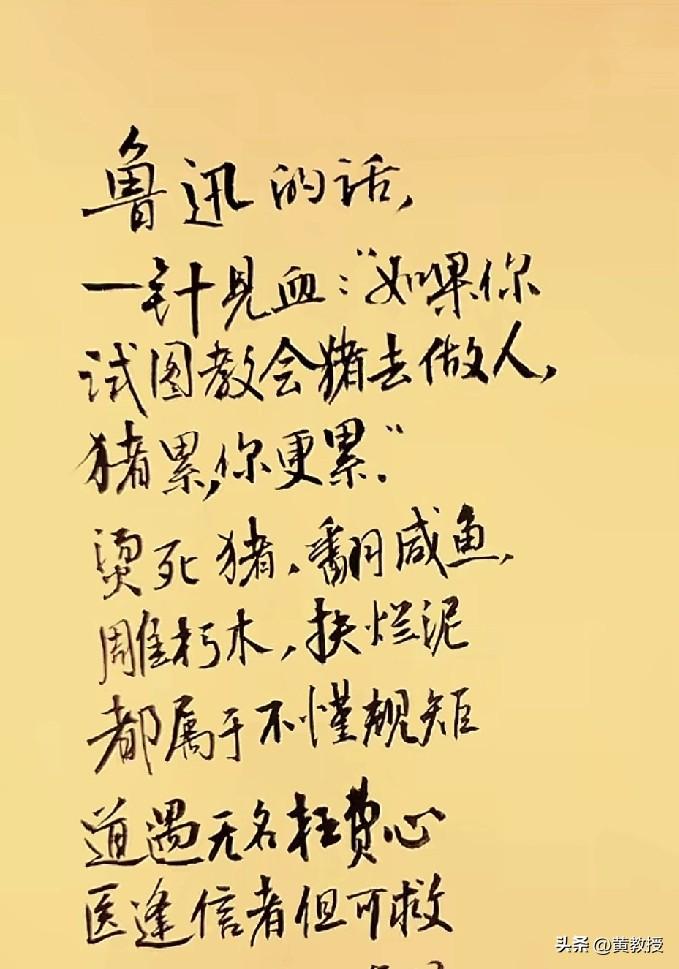 鲁迅的话,
一针见血:“如果你
试图教会猪去做人,
猪累,你更累.”
烫死猪,翻咸鱼,
雕朽木,扶烂泥
都属于不懂规矩
道遇无名枉费心
医逢信者但可救
头条 @黄教授